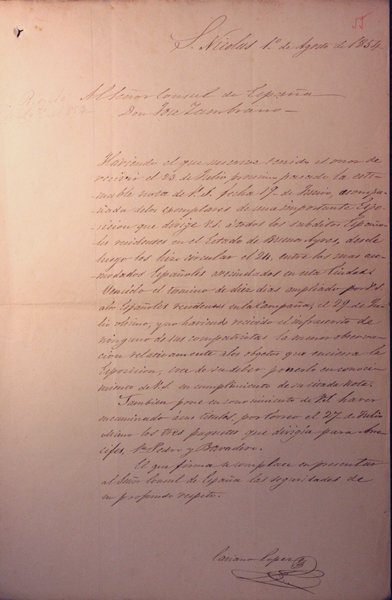 55
S. Nicolas 1º de Agosto de 1854
Al Señor Consul de España
Don Jose Zambrano
Habiendo el que suscribe tenido el onor de
recivir el 23 de Julio procsimo pasado la esti-
mable nota de V.S. fecha 19 de Junio, acompa-
ñada de los exemplares de una importante Espo-
sicion que dirige V.S. á todos los subditos Españo-
les recidentes en el Estado de Buenos Ayres, desde
luego los hizo circular el 24, entre los mas aco-
modados Españoles avecindados en esta Ciudad.
Vencido el termino de diez dias ampliado por V.S.
a los Españoles recidentes en la Campaña, el 29 de Ju-
lio ultimo, y no haviendo recivido el infrascrito de
ninguno de sus compatriotas la menor observa-
cion relativamente a los objetos que encierra la
Esposicion, cree de su deber ponerlo en conoci-
miento de V.S. en cumplimiento de su citada nota.
Tambien pone en conocimiento de V.S. haver
encaminado á sus titulos, por correo el 27 de Julio
ultimo los tres paquetes que dirigia para
Sn. Pedro y Baradero.
El que firma se complace en presentar
al Señor Consul de España las seguridades de
su profundo respeto.
Mariano Lopez